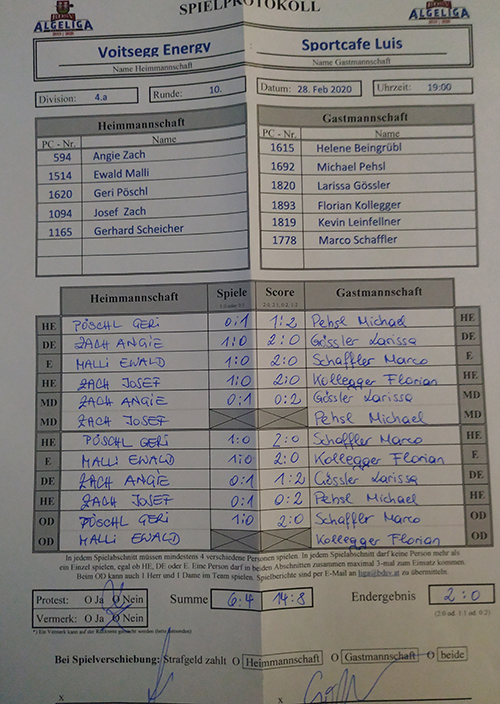 SPIELPROTOKOLL
ALGELIGA ALGELIGA
Voitsegg Energy Sportcafe Luis
Name Heimmannschaft Name Gastmannschaft
Division: 4.a Runde: 10. Datum: 28. Feb 2020 Uhrzeit: 19:00
Heimmannschaft Gastmannschaft
PC - Nr. Name PC - Nr. Name
594 Angie Zach 1615 Helene Beingrübl
1514 Ewald Malli 1692 Michael Pehsl
1620 Geri Pöschl 1820 Larissa Gössler
1094 Josef Zach 1893 Florian Kollegger
1165 Gerhard Scheicher 1819 Kevin Leinfellner
1778 Marco Schaffler
Heimmannschaft Spiele Score Gastmannschaft
HE PÖSCHL GERI 0:1 1:2 Pehsl Michael HE
DE ZACH ANGIE 1:0 2:0 Gössler Larissa DE
E MALLI EWALD 1:0 2:0 Schaffler Marco E
HE ZACH JOSEF 1:0 2:0 Kollegger Florian HE
MD ZACH ANGIE 0:1 0:2 Gössler Larissa MD
MD ZACH JOSEF Pehsl Michael MD
HE PÖSCHL GERI 1:0 2:0 Schaffler Marco HE
E MALLI EWALD 1:0 2:0 Kollegger Florian E
DE ZACH ANGIE 0:1 1:2 Gössler Larissa DE
HE ZACH JOSEF 0:1 0:2 Pehsl Michael HE
OD PÖSCHL GERI 1:0 2:0 Schaffler Marco OD
OD MALLI EWALD Kollegger Florian OD
In jedem Spielabschnitt müssen mindestens 4 verschiedene Personen spielen. In jedem Spielabschnitt darf keine Person mehr als
ein Einzel spielen, egal ob HE, DE oder E. Eine Person darf in beiden Abschnitten zusammen maximal 3-mal zum Einsatz kommen.
Beim OD kann auch 1 Herr und 1 Dame im Team spielen. Spielberichte sind per E-Mail an liga@bdsv.at zu übermitteln.
Protest: O Ja O Nein Summe 6:4 14:8 Endergebnis 2:0
Vermerk: O Ja O Nein (2:0 od. 1:1 od. 0:2)
*) Ein Vermerk kann auf der Rückseite gemacht werden
Bei Spielverschiebung: Strafgeld zahlt O Heimmannschaft O Gastmannschaft O beide
x x